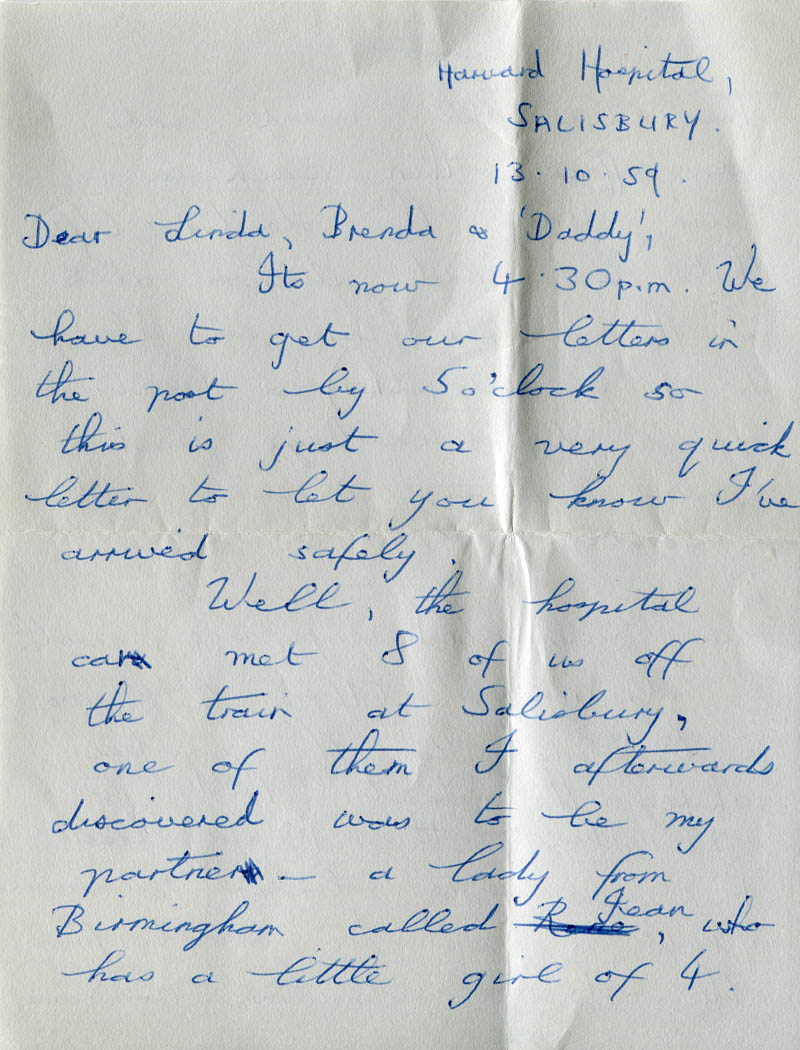 Harvard Hospital,
SALISBURY.
13.10.59.
Dear Linda, Brenda & 'Daddy',
Its now 4.30p.m. We
have to get our letters in
the post by 5 o'clock so
this is just a very quick
letter to let you know I've
arrived safely.
Well, the hospital
car met 8 of us off
the train at Salisbury,
one of them I afterwards
discovered was to be my
partner — a lady from
Birmingham called Jean, who
has a little girl of 4.